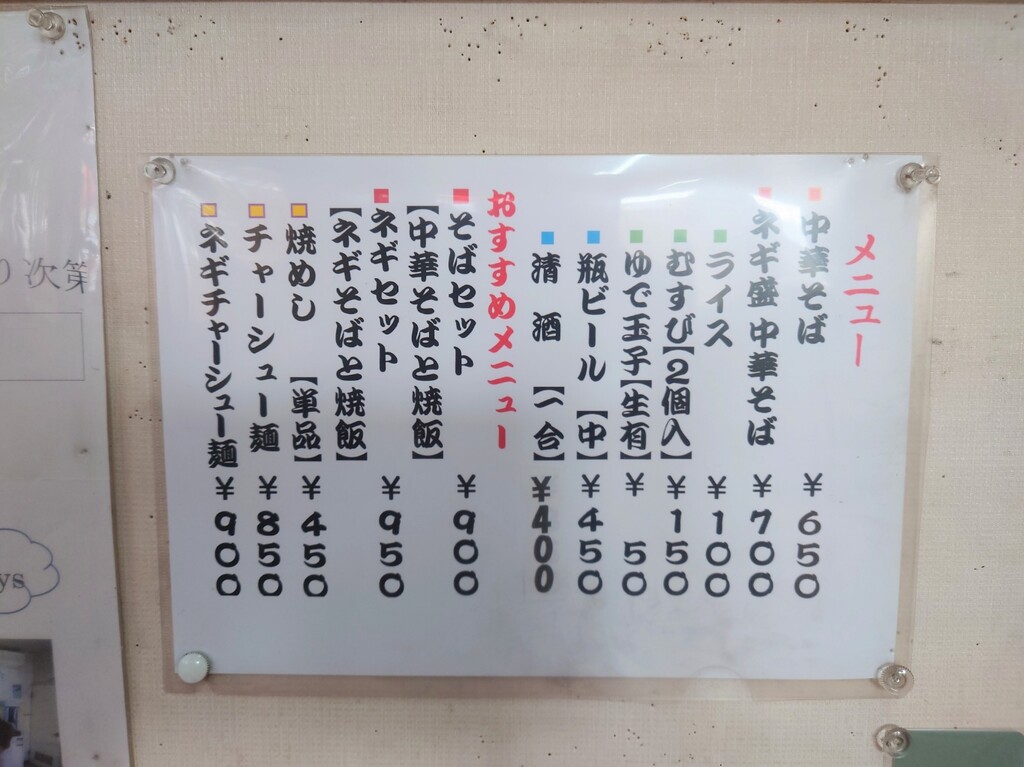 メニュー
中華そば ￥650
ネギ盛中華そば ￥700
ライス ￥100
むすび【2個入】 ￥150
ゆで玉子【生有】 ￥50
瓶ビール 【中】 ￥450
清酒 【一合】 ￥400
おすすめメニュー
そばセット ￥900
【中華そばと焼飯】
ネギセット ￥950
【ネギそばと焼飯】
焼めし 【単品】 ￥450
チャーシュー麺 ￥850
ネギチャーシュー麺 ￥900
り次第
ys